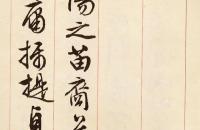 陽之苗裔兮
庸攝提貞